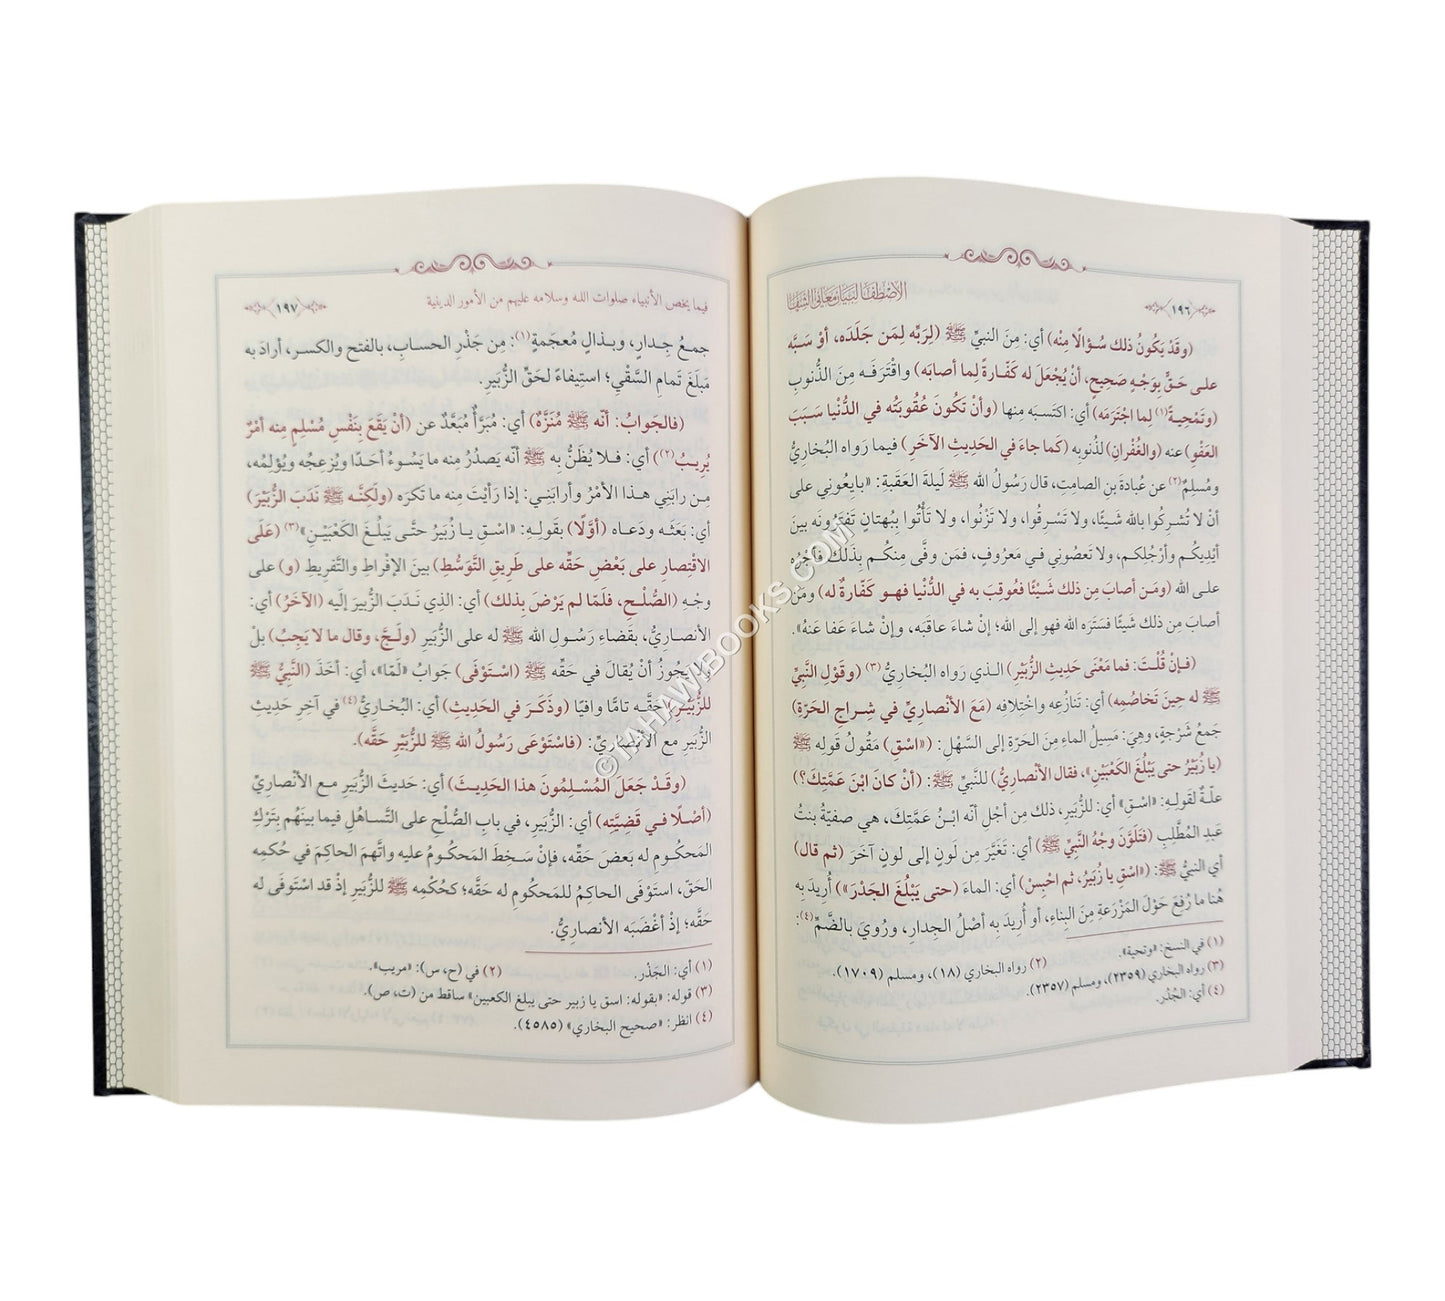 ١٩٦
الاصطفا لبيان معاني الشفا
(وقَدْ يَكُونُ ذلك سُؤالًا مِنْه) أي: مِنَ النبيِّ ﷺ (لِرَبِّه لِمَن جَلَدَه، أوْ سَبَّه
على حَقٍّ بِوَجْهٍ صَحِيحٍ، أنْ يُجْعَلَ له كَفّارةً لِما أصابَه) واقْتَرَفَه مِنَ الذُّنوبِ
(وتَمْحِيةً(١) لِما اجْتَرَمَه) أي: اكتَسَبَه منها (وأنْ تَكُونَ عُقُوبَتُه في الدُّنْيا سَبَبَ
العَفْوِ) عنه (والغُفْرانِ) لذُنوبِه (كَما جاءَ في الحَدِيثِ الآخَرِ) فيما رَواه البُخاريُّ
ومُسلِمٌ(٢) عن عُبادةَ بنِ الصامِتِ، قال رَسُولُ الله ﷺ لَيلةَ العَقَبةِ: «بايعُوني على
أنْ لا تُشرِكُوا بالله شَيئًا، ولا تَسْرِقُوا، ولا تَزْنُوا، ولا تَأْتُوا بِبُهتانٍ تَفتَرُونَه بينَ
أيْدِيكُم وأرْجُلِكُم، ولا تَعصُوني في مَعرُوفٍ، فمَن وفَّى مِنكُم بِذلك فأجْرُه
على الله (ومَن أصابَ مِن ذلك شَيْئًا فعُوقِبَ به في الدُّنْيا فهو كَفّارةٌ له) ومَن
أصابَ مِن ذلك شَيئًا فسَتَرَه الله فهو إلى الله؛ إنْ شاءَ عاقَبَه، وإنْ شاءَ عَفا عَنهُ».
(فإنْ قُلْتَ: فما مَعْنَى حَدِيثِ الزُّبَيْرِ) الذي رَواه البُخاريُّ(٣) (وقَوْلِ النَّبِيِّ
ﷺ له حِينَ تَخاصُمِه) أي: تَنازُعِه واخْتِلافِه (مَعَ الأنْصارِيِّ في شِراجِ الحَرّةِ)
جَمعُ شَرْجةٍ، وهِيَ: مَسِيلُ الماءِ مِنَ الحَرّةِ إلى السَّهْلِ: («اسْقِ) مَقُولُ قَولِه ﷺ
(يا زُبَيْرُ حتى يَبْلُغَ الكَعْبَيْنِ»، فقال الأنْصارِيُّ) للنَّبيِّ ﷺ: (أنْ كانَ ابْنَ عَمَّتِكَ؟)
علّةٌ لقَولِه: «اسْقِ» أي: للزُّبَير، ذلك مِن أجْلِ أنّه ابْنُ عَمَّتِكَ، هي صفيّةُ بنتُ
عَبدِ المُطَّلِبِ (فتَلَوَّنَ وجْهُ النَّبِيِّ ﷺ) أي: تَغَيَّرَ مِن لَونٍ إلى لَونٍ آخَرَ (ثم قال)
أي النبيُّ ﷺ: («اسْقِ يا زُبَيْرُ، ثم احْبِسْ) أي: الماءَ (حتى يَبْلُغَ الجَدْرَ») أُرِيدَ بِه
هُنا ما رُفِعَ حَوْلَ المَزْرَعةِ مِنَ البِناءِ، أو أُرِيدَ بِه أصْلُ الجِدارِ، ورُوِيَ بالضَّمِّ(٤):
(١) في النسخ: «وتحية».
(٢) رواه البخاري (١٨)، ومسلم (١٧٠٩).
(٣) رواه البخاري (٢٣٥٩)، ومسلم (٢٣٥٧).
(٤) أي: الجُدُر.
فيما يخص الأنبياء صلوات الله وسلامه عليهم من الأمور الدينية
١٩٧
جمعُ جِدارٍ، وبذالٍ مُعجَمةٍ(١): مِن جَذْرِ الحسابِ، بالفتح والكسر، أرادَ به
مَبلَغَ تَمامِ السَّقْيِ؛ استِيفاءً لحَقِّ الزُّبَيرِ.
(فالجَوابُ: أنّه ﷺ مُنَزَّهٌ) أي: مُبَرَّأٌ مُبَعَّدٌ عن (أنْ يَقَعَ بِنَفْسِ مُسْلِمٍ مِنه أمْرٌ
يُرِيبُ(٢)) أي: فلا يُظَنُّ به ﷺ أنّه يَصدُرُ مِنه ما يَسُوءُ أحَدًا ويُزعِجُه ويُؤلِمُه،
مِن رابَنِي هذا الأمْرُ وأرابَنِي: إذا رَأيْتَ مِنه ما تَكرَه (ولَكِنَّه ﷺ نَدَبَ الزُّبَيْرَ)
أي: بَعَثَه ودَعاه (أوَّلًا) بقَولِه: «اسْقِ يا زُبَيرُ حتَّى يَبلُغَ الكَعْبَيْنِ»(٣) (عَلَى
الاقْتِصارِ على بَعْضِ حَقِّه على طَرِيقِ التَّوَسُّطِ) بينَ الإفْراطِ والتَّفرِيطِ (و) على
وجْهِ (الصُّلْحِ، فلَمّا لم يَرْضَ بذلك) أي: الذِي نَدَبَ الزُّبيرَ إلَيه (الآخَرُ) أي:
الأنصاريُّ، بقَضاءِ رَسُولِ الله ﷺ له على الزُّبَيرِ (ولَجَّ، وقال ما لا يَجِبُ) بلْ
ولا يَجُوزُ أنْ يُقالَ في حَقِّه ﷺ (اسْتَوْفَى) جَوابُ «لَمّا»، أي: أخَذَ (النَّبِيُّ ﷺ
للزُّبَيْرِ) حَقَّه تامًّا وافيًا (وذَكَرَ في الحَدِيثِ) أي: البُخاريُّ(٤) في آخِرِ حَديثِ
الزُّبَيرِ مع الأنصاريِّ: (فاسْتَوْعَى رَسُولُ الله ﷺ للزُّبَيْرِ حَقَّه).
(وقَدْ جَعَلَ المُسْلِمُونَ هذا الحَدِيثَ) أي: حَدِيثَ الزُّبَيرِ مع الأنصاريِّ
(أصْلًا في قَضِيَّتِه) أي: الزُّبَيرِ، في بابِ الصُّلْحِ على التَّساهُلِ فيما بينَهُم بِتَرْكِ
المَحكُومِ له بَعضَ حَقِّه، فإنْ سَخِطَ المَحكُومُ عليه واتَّهَمَ الحاكِمَ في حُكمِه
الحَقَّ، استَوْفَى الحاكِمُ للمَحكُومِ له حَقَّه؛ كحُكْمِه ﷺ للزُّبَيرِ إذْ قد استَوفَى له
حَقَّه؛ إذْ أغْضَبَه الأنصاريُّ.
(١) أي: الجَذْر.
(٢) في (ح، س): «مريب».
(٣) قوله: «بقوله: اسق يا زبير حتى يبلغ الكعبين» ساقط من (ت، ص).
(٤) انظر: «صحيح البخاري» (٤٥٨٥).